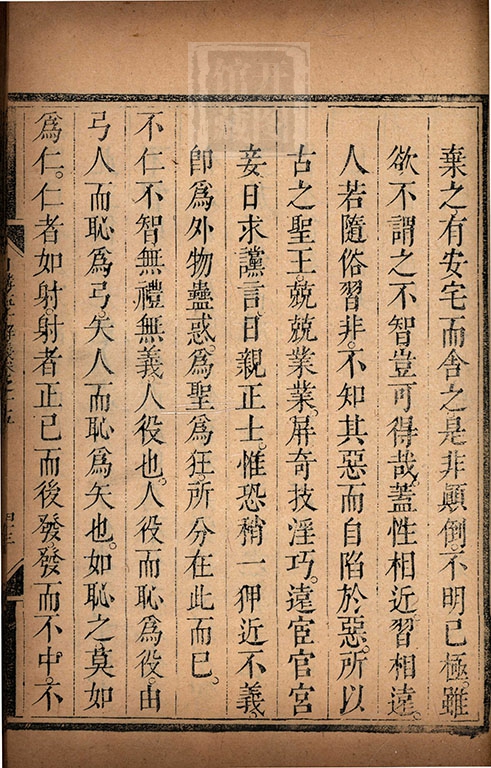 棄之有安宅而舍之是非顚倒。不明已極。雖
欲不謂之不智豈可得哉。蓋性相近習相遠。
人若隨俗習非。不知其惡而自陷於惡。所以
古之聖王。兢兢業業。屏奇技淫巧。遠宦官宮
妾。日求讜言。日親正士。惟恐稍一狎近不義。
卽爲外物蠱惑。爲聖爲狂。所分在此而已。
不仁不智無禮無義人役也。人役而恥爲役。由
弓人而恥爲弓。矢人而恥爲矢也。如恥之莫如
爲仁。仁者如射。射者正己而後發。發而不中。不